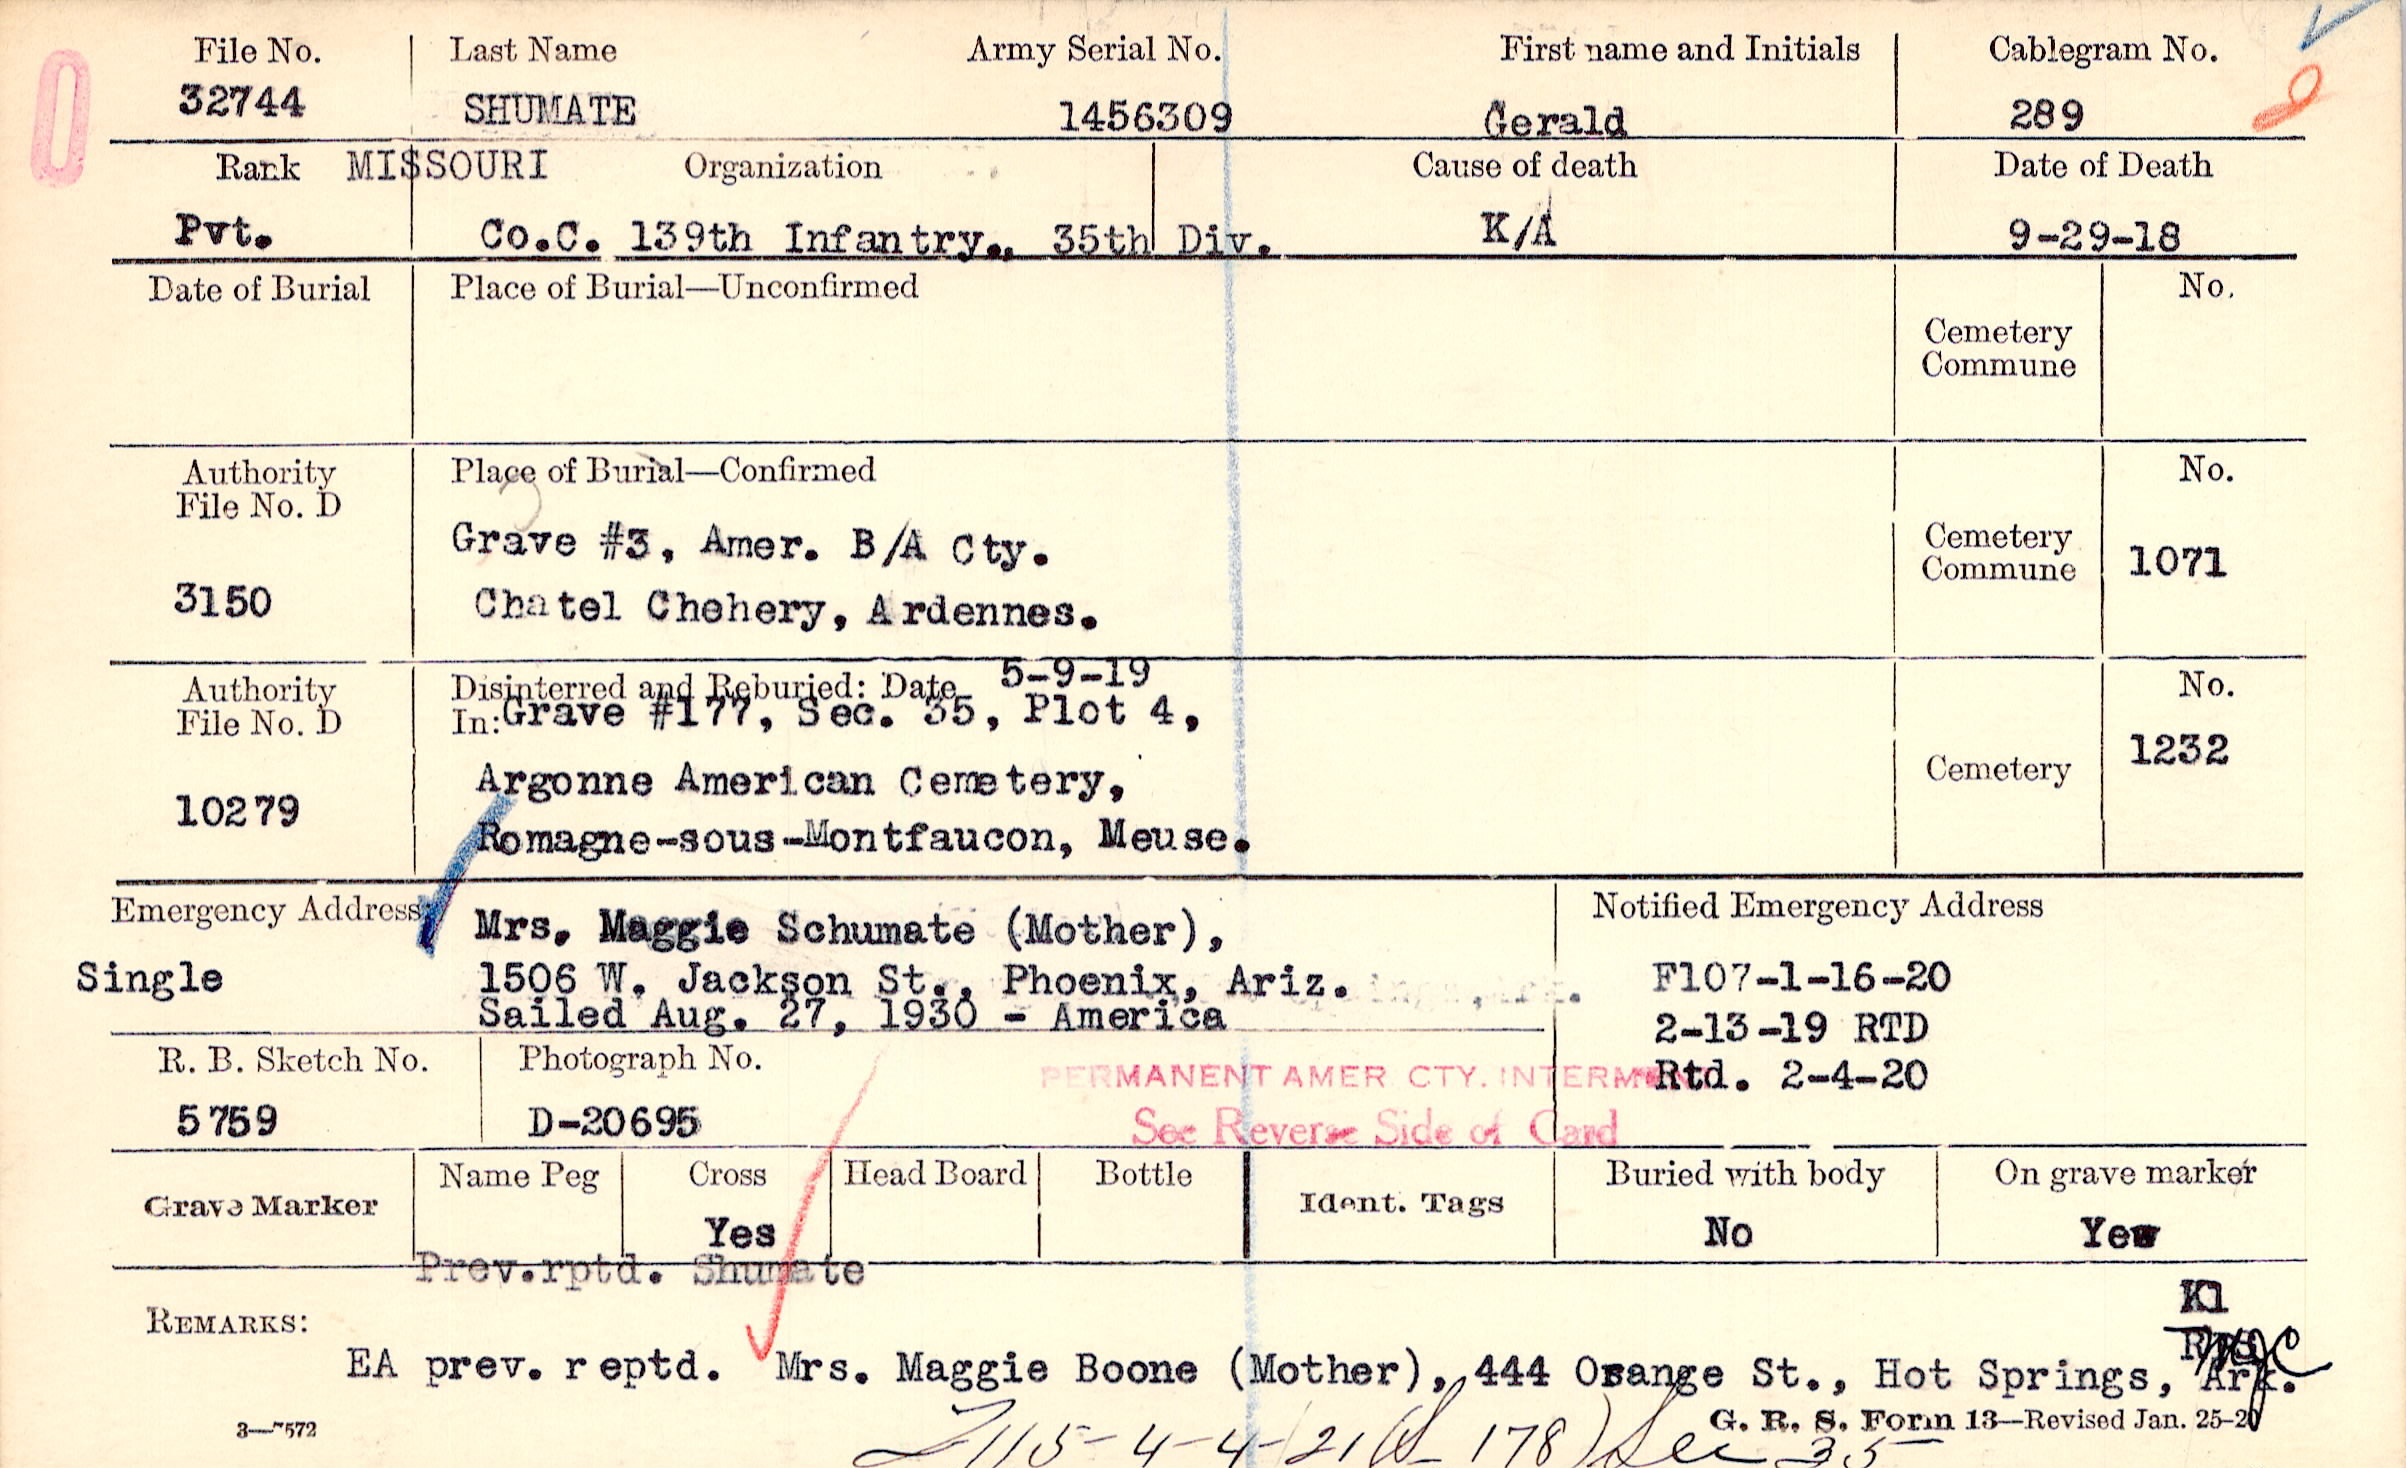 File No. Last Name Army Serial No. First name and Initials Cablegram No.
32744 SHUMATE 1456309 Gerald 289
Rank MISSOURI Organization Cause of death Date of Death
Pvt. Co.C. 139th Infantry., 35th Div. K/A 9-29-18
Date of Burial Place of Burial—Unconfirmed No.
Cemetery
Commune
Authority Place of Burial—Confirmed No.
File No. D
Grave #3, Amer. B/A Cty. Cemetery
Commune 1071
3150 Chatel Chehery, Ardennes.
Authority Disinterred and Reburied: Date 5-9-19 No.
File No. D In: Grave #177, Sec. 35, Plot 4,
1232
Argonne American Cemetery, Cemetery
10279
Romagne-sous-Montfaucon, Meuse.
Emergency Address Mrs. Maggie Schumate (Mother), Notified Emergency Address
Single 1506 W. Jackson St., Phoenix, Ariz. F107-1-16-20
Sailed Aug. 27, 1930 - America 2-13-19 RTD
R. B. Sketch No. Photograph No. PERMANENT AMER CTY. INTERMENT Rtd. 2-4-20
5759 D-20695 See Reverse Side of Card
Grave Marker Name Peg Cross Head Board Bottle Ident. Tags Buried with body On grave marker
Yes No Yes
Prev.rptd. Shumate
K1
REMARKS:
EA prev. reptd. Mrs. Maggie Boone (Mother), 444 Orange St., Hot Springs, Ark.
3—7572 G. R. S. Form 13—Revised Jan. 25-20
115-4-4-21 178) Sec 35